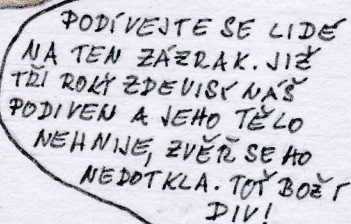 PODÍVEJTE SE LIDÉ
NA TEN ZÁZRAK. JIŽ
TŘI ROKY ZDE VISÍ NÁŠ
PODIVEN A JEHO TĚLO
NEHNIJE, ZVĚŘ SE HO
NEDOTKLA. TOŤ BOŽÍ
DIV!